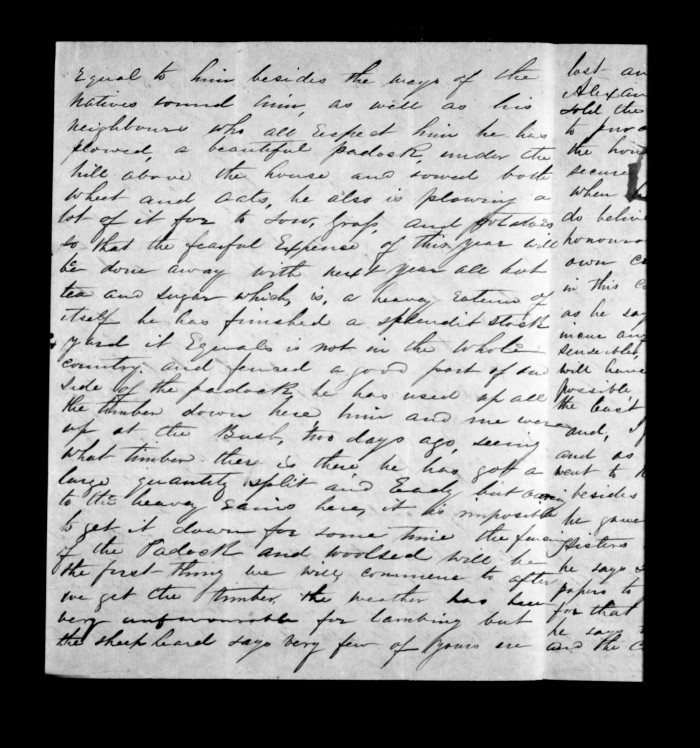 Equal to him besides the ways of the
natives round him, as well as his
neighbours who all Espect him he has
plowed, a beautiful padock, under the
hill above the house and sowed both
wheet and oats, he also is plowing a
lot of it for to sow, Grass, and potatoes
so that the fearful Expense of this year will
be done away with next year all but
tea and sugar which, is, a heavy of
itself he has finished a splendit stock
yard it Equals is not in the whole
country. and fenced a good part of
side of the padock he has used up all
the timber down here him and me were
up at the Bush, two days ago, seeing
what timber ther is there he has gott a
large quantity split and Eady but
to the heavy Eains here, it is imposible
to get it down for some time the
if the Padock and woolsed will be
the first thing we will commence to after
we get the timber. the weather has been
very unfavourable for lambing but
the sheepheard says very few of yours
lost an
Alexan
sold the
to
the
secure
when
do
honoura
own c
in this c
as he say
incur any
sensibles,
will have
possible,
the last
and, I
and as
went to
besides
he gave
sisters
he says
papers to
for that
he says
and the C